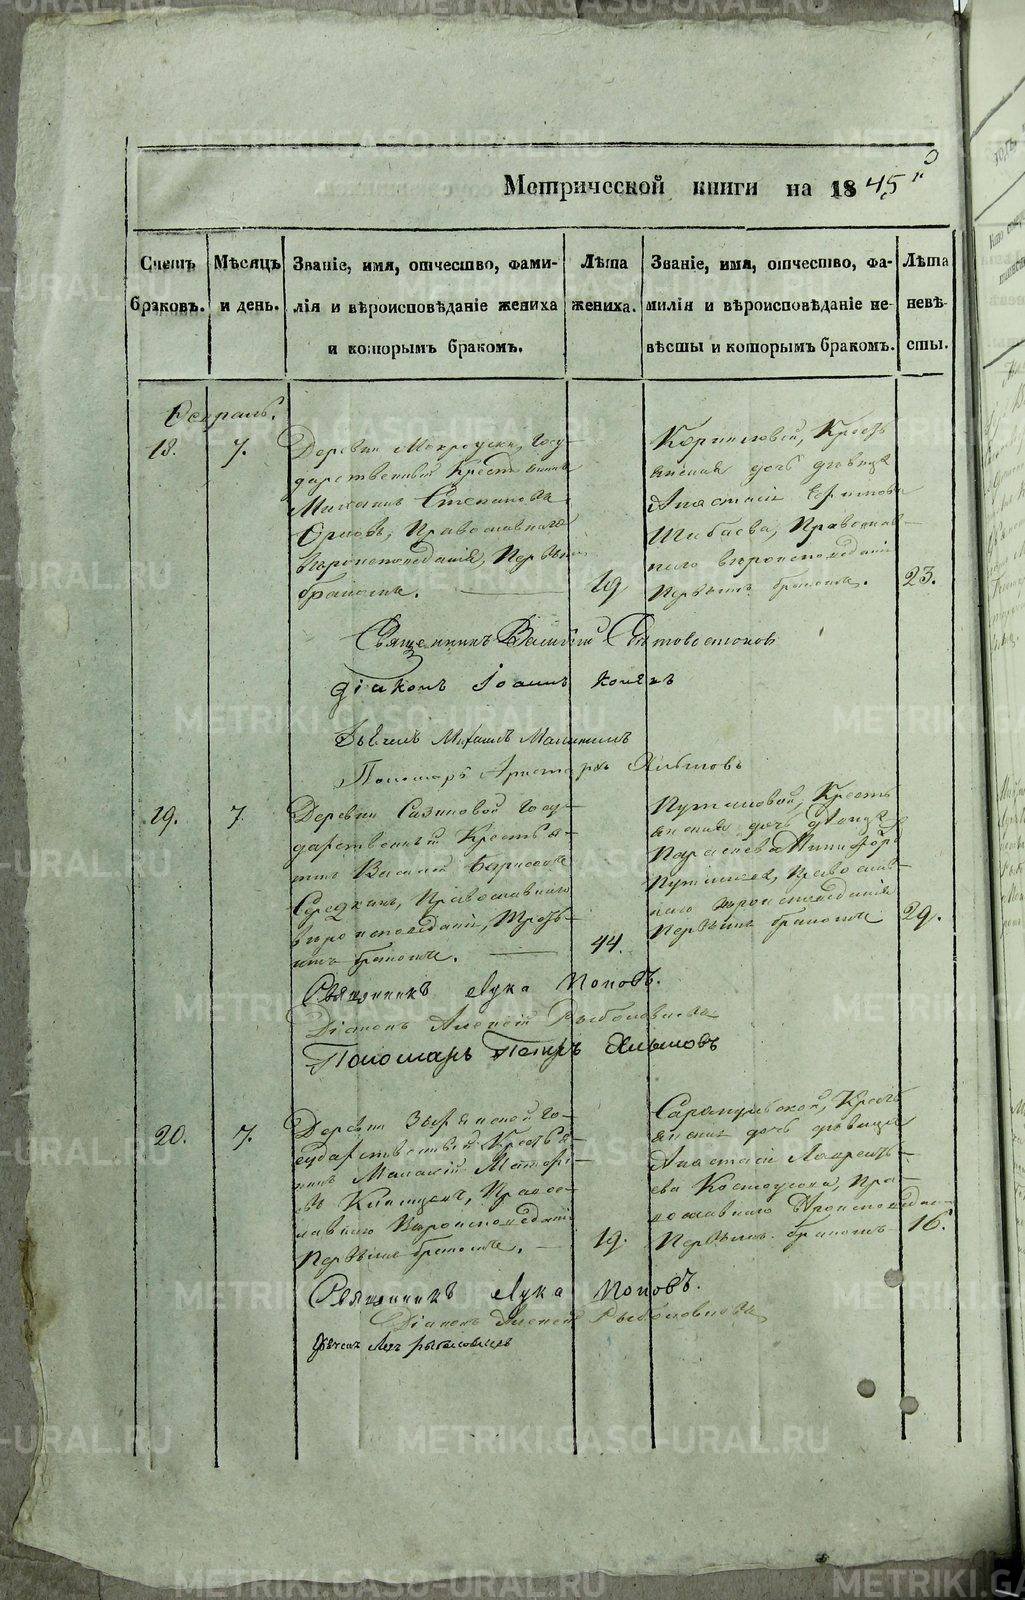 Метрической книги на 1845 го
Счетъ браковъ.
Мѣсяцъ и день.
Званіе, имя, отчество, фами-
лія и вѣроисповѣданіе жениха
и которымъ бракомъ.
Лѣта жениха.
Званіе, имя, отчество, фа-
милія и вѣроисповѣданіе не-
вѣсты и которымъ бракомъ.
Лѣта невѣ-
сты.
18. 7.
Деревни Мокроуски, Госу-
дарственный Крестьянинъ
Михаилъ Степановъ
Орловъ, Православнаго
вѣроисповеданія, Первымъ
бракомъ.
19
Корниловой, Кресть
янская дочь девица
Анастасія Ефимова
Шибаева, Православ-
наго вѣроисповеданія
Первымъ бракомъ.
23.
Священникъ Василій
Діаконъ Іоаннъ
Михаилъ
Пономарь Аристархъ Хлыновъ
19. 7
Деревни Сазиковой Госу-
дарственный Крестья-
нинъ Василій Борисовъ
Середкинъ, Православнаго
вѣроисповеданія, Треть-
имъ бракомъ.
44.
Путиловой, Кресть
янская дочь девица
Параскева Никифоро
Путилова, Православ-
наго вѣроисповеданія
Первымъ бракомъ
29.
Священникъ Лука Поповъ.
Діаконъ Алексій Рыболовлевъ
Пономарь Петръ Хлыновъ
20. 7.
Деревни Зырянской Го-
сударственный Крестья-
нинъ
Православ-
лавнаго Вѣроисповеданія
Первымъ бракомъ.
19.
Сарапульской, Кресть
янская дочь девица
Анастасія Лаврентъ-
ева Костоусова, Пра-
вославнаго Вѣроисповеданія
Первымъ бракомъ
16.
Священникъ Лука Поповъ.
Діаконъ Алексій Рыболовлевъ
METRIKI.GASO-URAL.RU